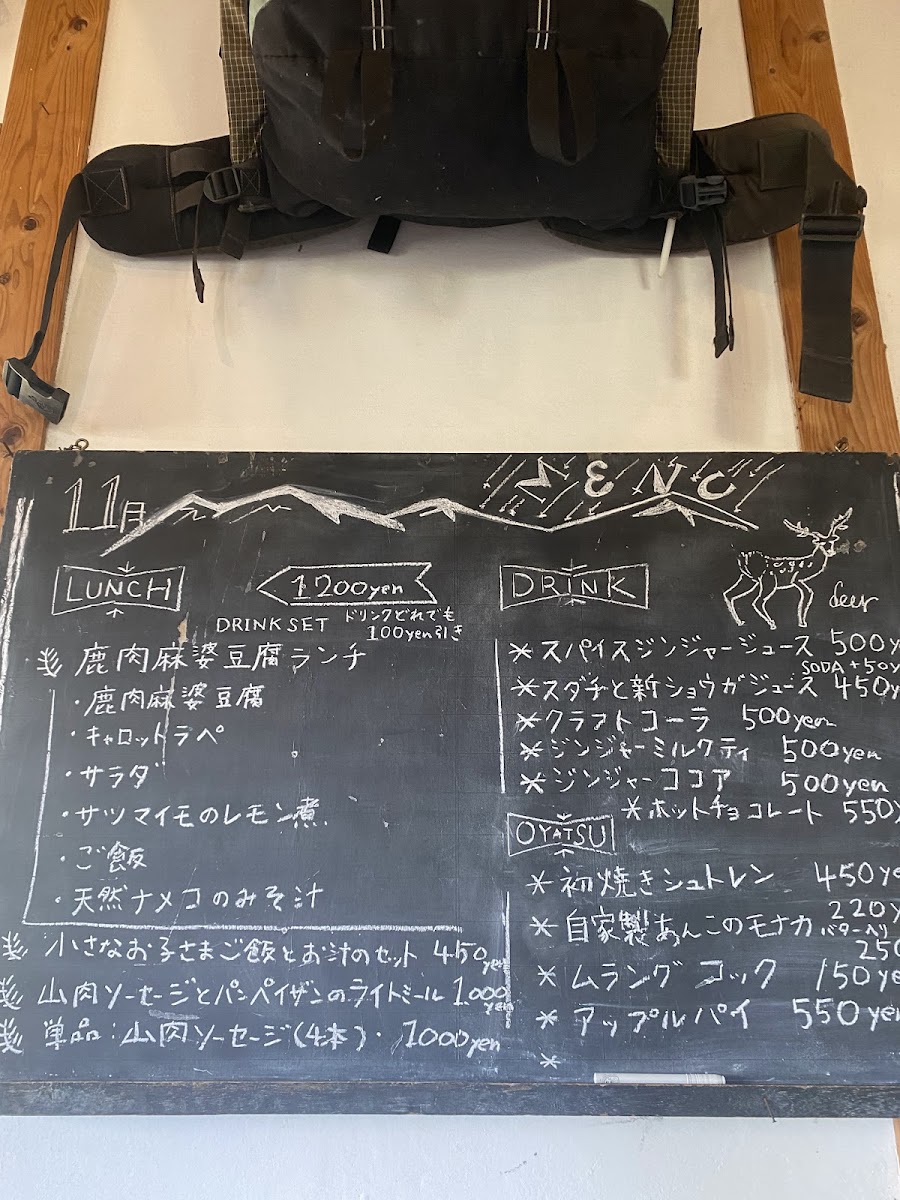 11月
MENU
LUNCH
1200yen
DRINK SET ドリンクどれでも
100yen引き
鹿肉麻婆豆腐ランチ
・鹿肉麻婆豆腐
・キャロットラペ
・サラダ
・サツマイモのレモン煮
・ご飯
・天然ナメコのみそ汁
小さなお子さまご飯とお汁のセット 450yen
山肉ソーセージとパンペイザンのライトミール 1000yen
単品:山肉ソーセージ(4本)・1000yen
DRINK
deer
*スパイスジンジャージュース 500y
SODA +50y
*スダチと新ショウガジュース 450y
*クラフトコーラ 500yen
*ジンジャーミルクティ 500yen
*ジンジャーココア 500yen
*ホットチョコレート 550y
OYATSU
*初焼きシュトレン 450ye
*自家製あんこのモナカ 220y
バター入り 250
*ムラングコック 150ye
*アップルパイ 550yen
*